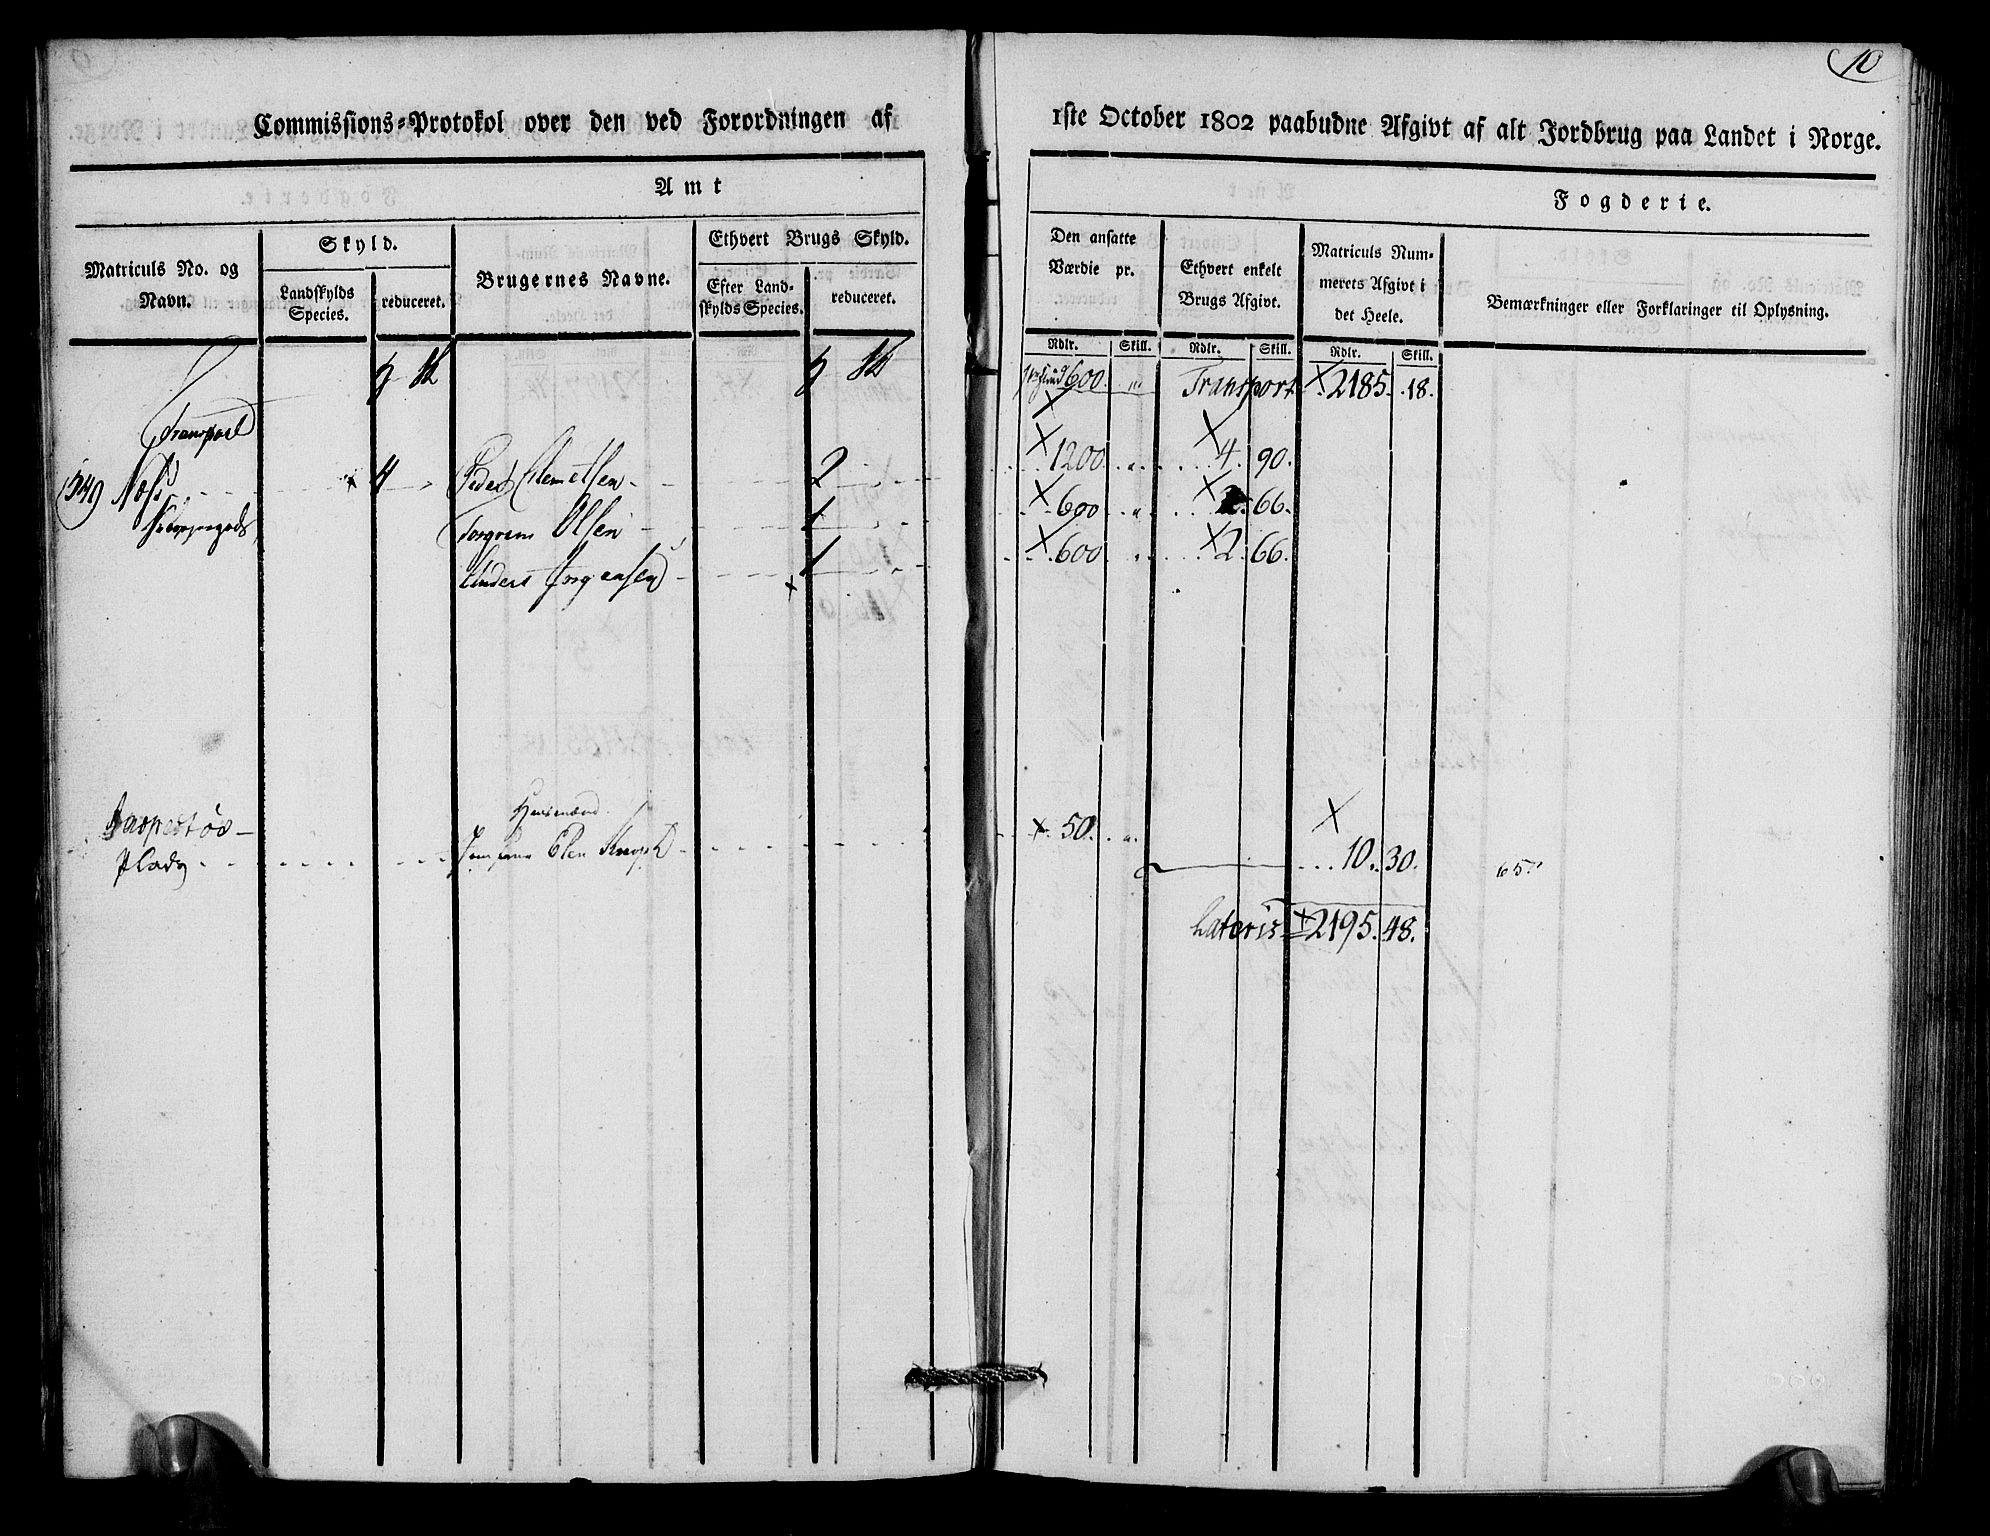 10
Commissions-Protokol over den ved Forordningen af 1ste October 1802 paabudne Afgivt af alt Jordbrug paa Landet i Norge.
Amt
Fogderie.
Matriculs No. og Navn.
Skyld.
Landskylds Species.
reduceret.
Brugernes Navne.
Ethvert Brugs Skyld.
Efter Landskylds Species.
reduceret.
Den ansatte Værdie pr.
Ethvert enkelt Brugs Afgivt.
Matriculs Nummerets Afgivt i det Heele.
Bemærkninger eller Forklaringer til Oplysning.
Rdlr. Skill. Rdlr. Skill. Rdlr. Skill.
600 Transport 2185. 18.
Transport
4 Peder Clemetsen 2 1200 4. 90.
Torgrem Olsen 1 600 66.
Anders Jørgensen 1 600 2. 66.
Huusmænd
50.
Plads 10. 30. 65.
Lateris 2195. 48.